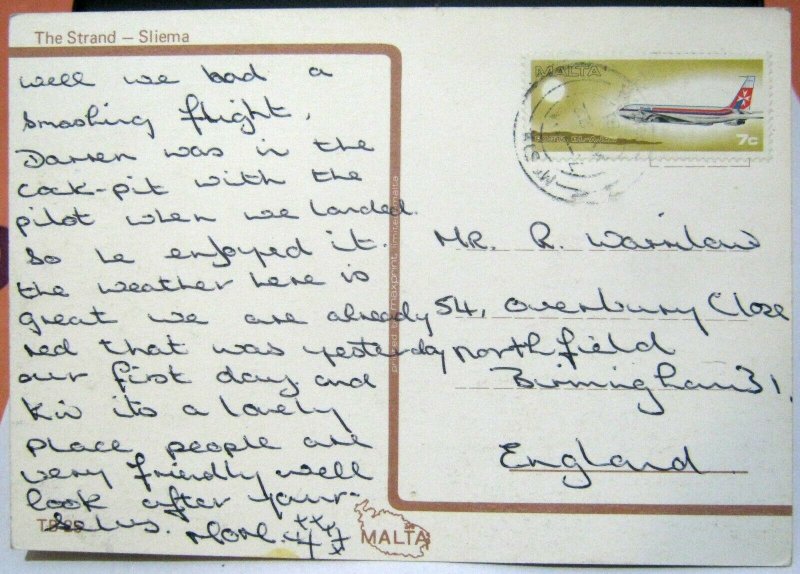 The Strand – Sliema
well we had a
smashing flight,
Darren was in the
cock-pit with the
pilot when we landed.
So he enjoyed it.
the weather here is
great we are already
red that was yesterday
our first day and
its a lovely
place, people are
very friendly well
look after your-
selves.
MALTA
7c
printed by maxprint limited malta
MR. R. Warrilow
54, overbury Close
northfield
Birmingham 31.
England
MALTA